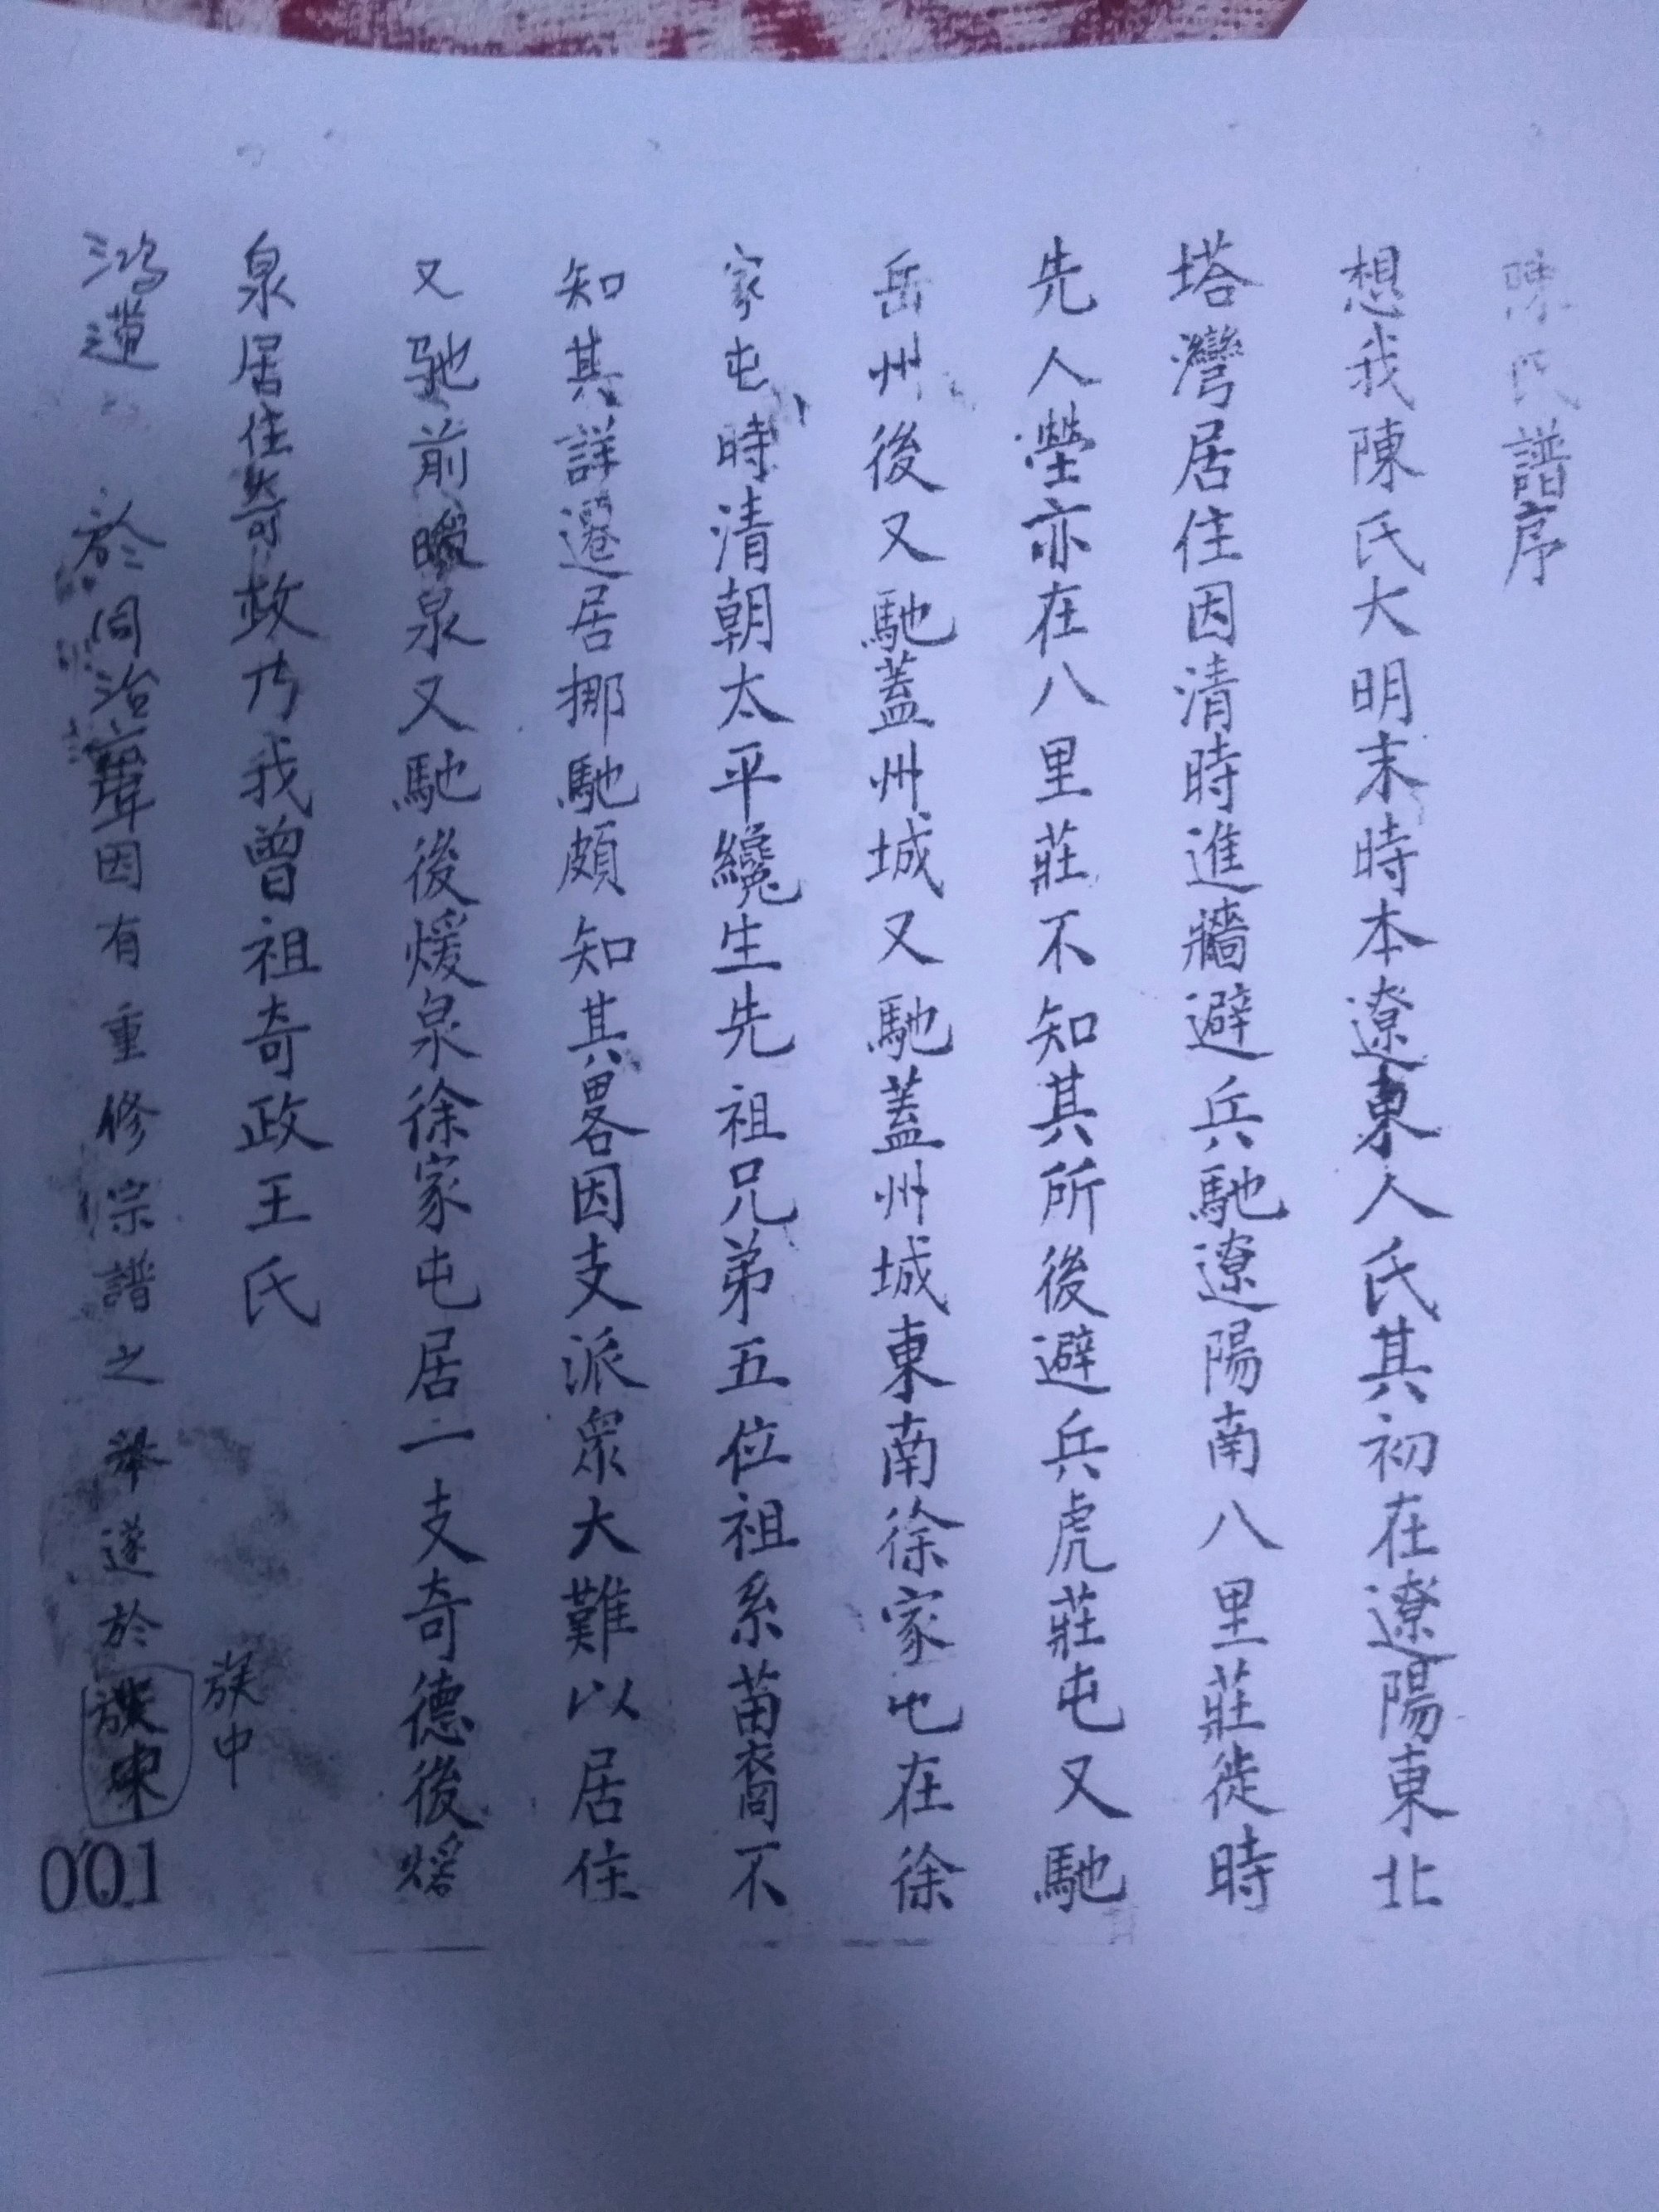 陳氏譜序
想我陳氏大明末時本遼東人氏其初在遼陽東北
塔灣居住因清時進牆避兵馳遼陽南八里莊徙時
先人塋亦在八里莊不知其所後避兵虎莊屯又馳
岳州後又馳蓋州城又馳蓋州城東南徐家屯在徐
家屯時清朝太平纔生先祖兄弟五位祖系苗裔不
知其詳遷居挪馳頗知其畧因支派眾大難以居住
又馳前暖泉又馳後煖泉徐家屯居一支奇德後煖
泉居住奇政乃我曾祖奇政王氏
鴻運 於同治 因有重修宗譜之舉遂於
族中
001